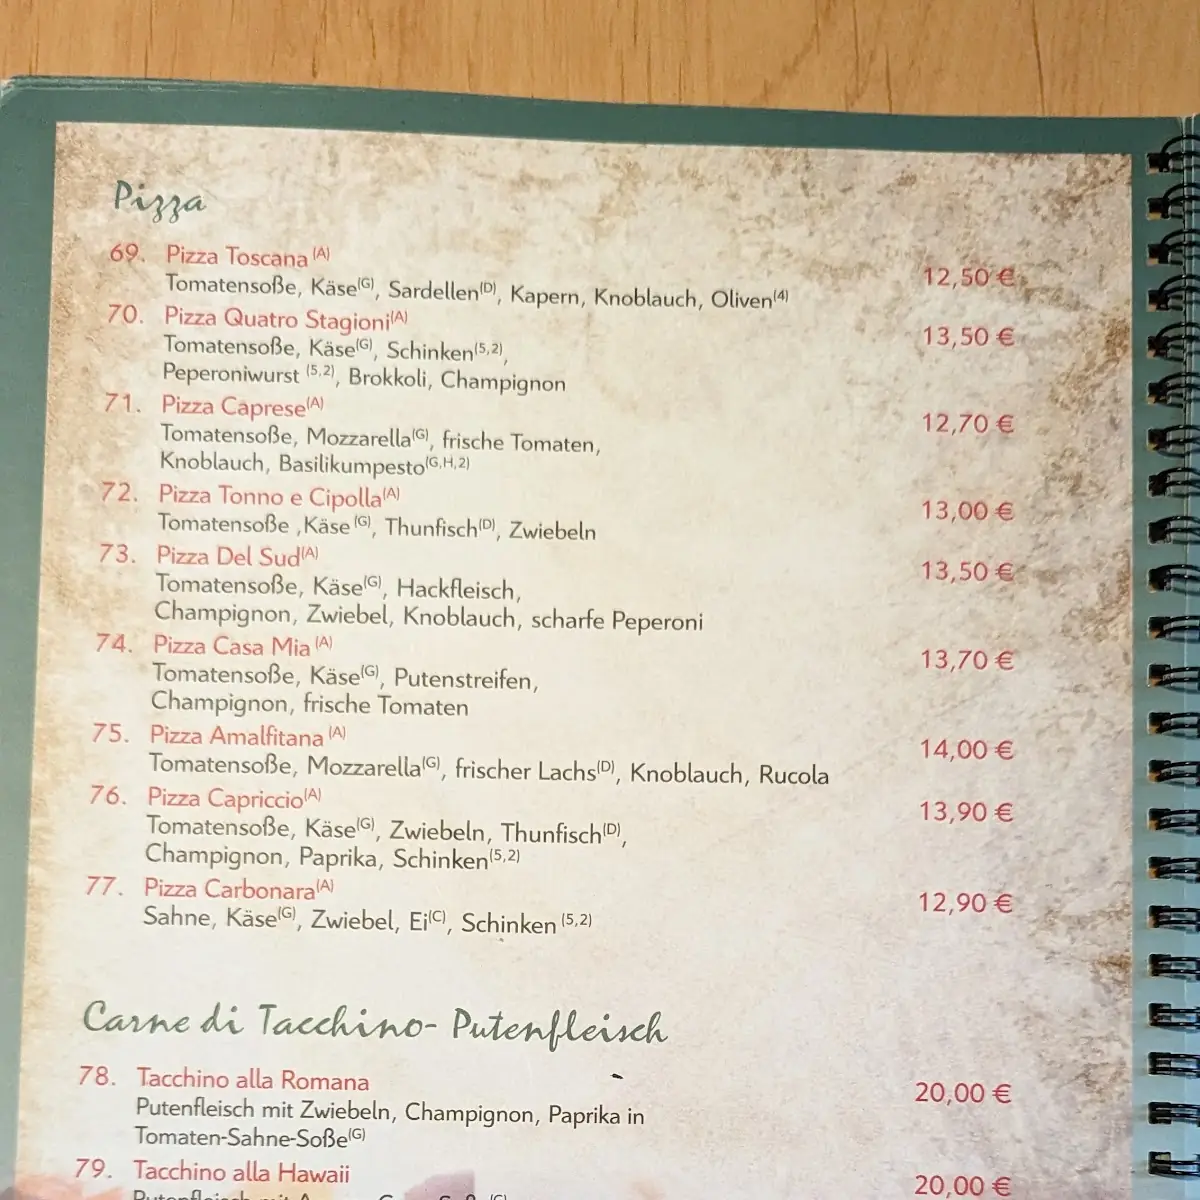 Pizza
69. Pizza Toscana (A)
Tomatensoße, Käse(G), Sardellen(D), Kapern, Knoblauch, Oliven(4) 12,50 €
70. Pizza Quatro Stagioni(A) 13,50 €
Tomatensoße, Käse(G), Schinken(5,2),
Peperoniwurst (5,2), Brokkoli, Champignon
71. Pizza Caprese(A) 12,70 €
Tomatensoße, Mozzarella(G), frische Tomaten,
Knoblauch, Basilikumpesto(G,H,2)
72. Pizza Tonno e Cipolla(A) 13,00 €
Tomatensoße ,Käse (G), Thunfisch(D), Zwiebeln
73. Pizza Del Sud(A) 13,50 €
Tomatensoße, Käse(G), Hackfleisch,
Champignon, Zwiebel, Knoblauch, scharfe Peperoni
74. Pizza Casa Mia (A) 13,70 €
Tomatensoße, Käse(G), Putenstreifen,
Champignon, frische Tomaten
75. Pizza Amalfitana (A) 14,00 €
Tomatensoße, Mozzarella(G), frischer Lachs(D), Knoblauch, Rucola
76. Pizza Capriccio(A) 13,90 €
Tomatensoße, Käse(G), Zwiebeln, Thunfisch(D),
Champignon, Paprika, Schinken(5,2)
77. Pizza Carbonara(A) 12,90 €
Sahne, Käse(G), Zwiebel, Ei(C), Schinken (5,2)
Carne di Tacchino- Putenfleisch
78. Tacchino alla Romana 20,00 €
Putenfleisch mit Zwiebeln, Champignon, Paprika in
Tomaten-Sahne-Soße(G)
79. Tacchino alla Hawaii 20,00 €
Putenfleisch mit